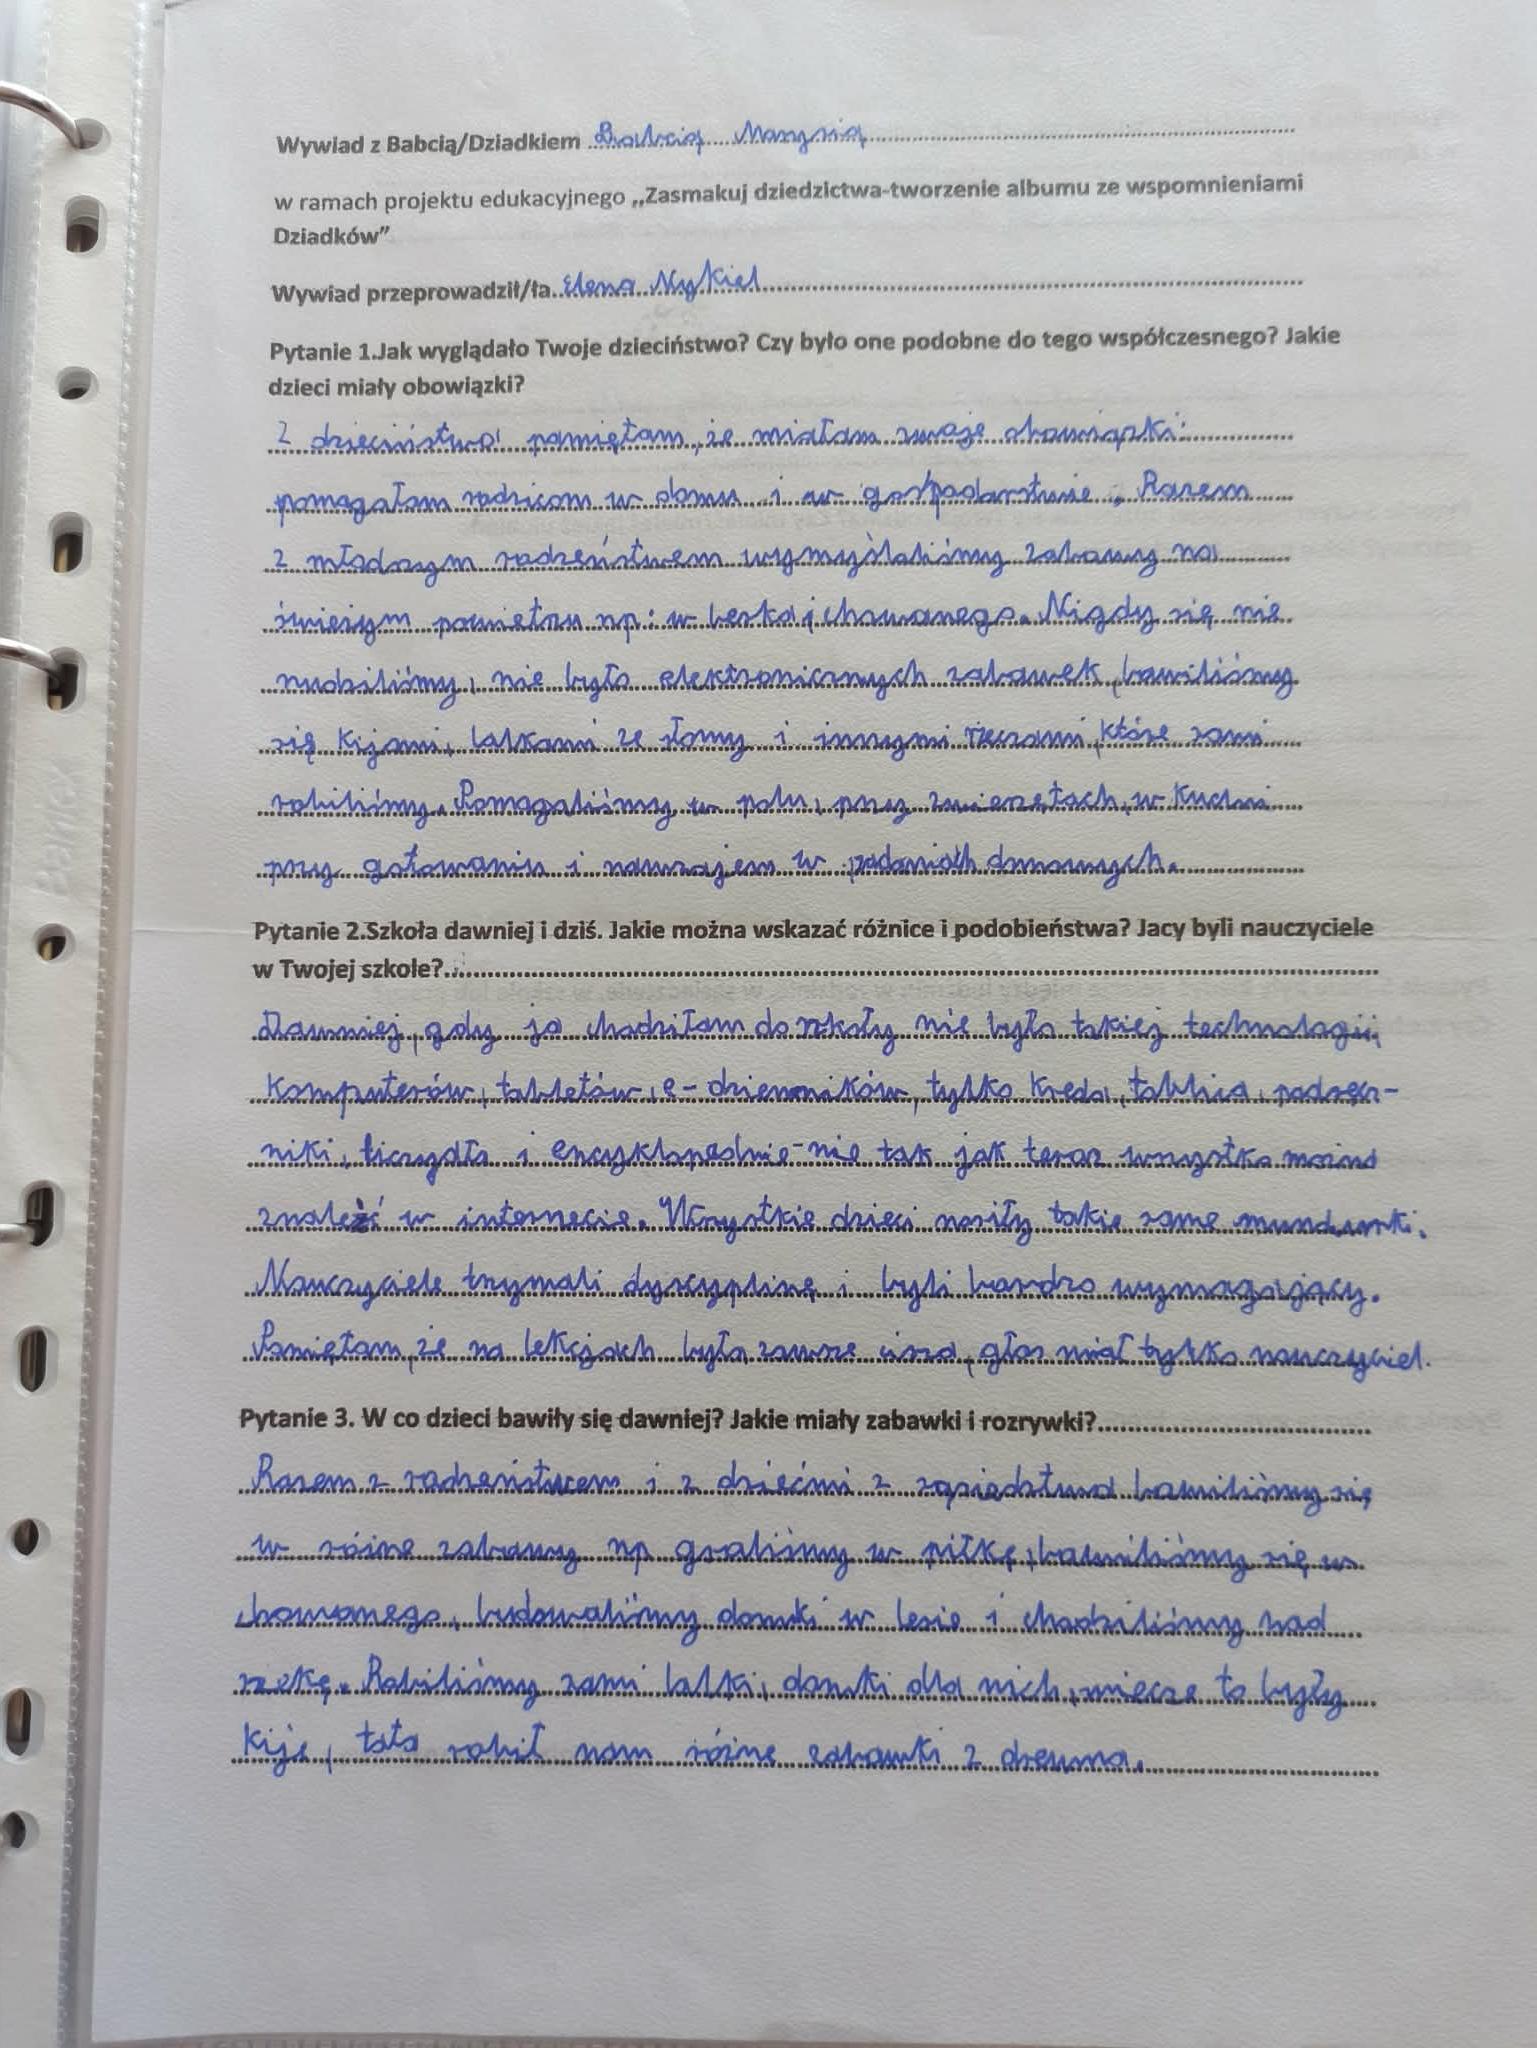 Wywiad z Babcią/Dziadkiem Babcią Marysią
w ramach projektu edukacyjnego „Zasmakuj dziedzictwa-tworzenie albumu ze wspomnieniami
Dziadków”
Wywiad przeprowadził/ła Elena Nykiel
Pytanie 1.Jak wyglądało Twoje dzieciństwo? Czy było one podobne do tego współczesnego? Jakie
dzieci miały obowiązki?
Z dzieciństwa pamiętam, że miałam swoje obowiązki:
pomagałam rodzicom w domu i w gospodarstwie. Razem
z młodszym rodzeństwem wymyślaliśmy zabawy na
świeżym powietrzu np: w berka i chowanego. Nigdy się nie
nudziliśmy, nie było elektronicznych zabawek, bawiliśmy
się kijami, lalkami ze słomy i innymi rzeczami, które sami
robiliśmy. Pomagaliśmy w polu, przy zwierzętach, w kuchni
przy gotowaniu i nawzajem w zadaniach domowych.
Pytanie 2.Szkoła dawniej i dziś. Jakie można wskazać różnice i podobieństwa? Jacy byli nauczyciele
w Twojej szkole?
Dawniej, gdy ja chodziłam do szkoły nie było takiej technologii,
komputerów, tabletów, e-dzienników, tylko kreda, tablica, podręcz-
niki, liczydła i encyklopedie - nie tak jak teraz wszystko można
znaleźć w internecie. Wszystkie dzieci nosiły takie same mundurki.
Nauczyciele trzymali dyscyplinę i byli bardzo wymagający.
Pamiętam, że na lekcjach była zawsze cisza, głos miał tylko nauczyciel.
Pytanie 3. W co dzieci bawiły się dawniej? Jakie miały zabawki i rozrywki?
Razem z rodzeństwem i z dziećmi z sąsiedztwa bawiliśmy się
w różne zabawy np graliśmy w piłkę, bawiliśmy się w
chowanego, budowaliśmy domki w lesie i chodziliśmy nad
rzekę. Robiliśmy sami lalki, domki dla nich, miecze to były
kije, tata robił nam różne zabawki z drewna.